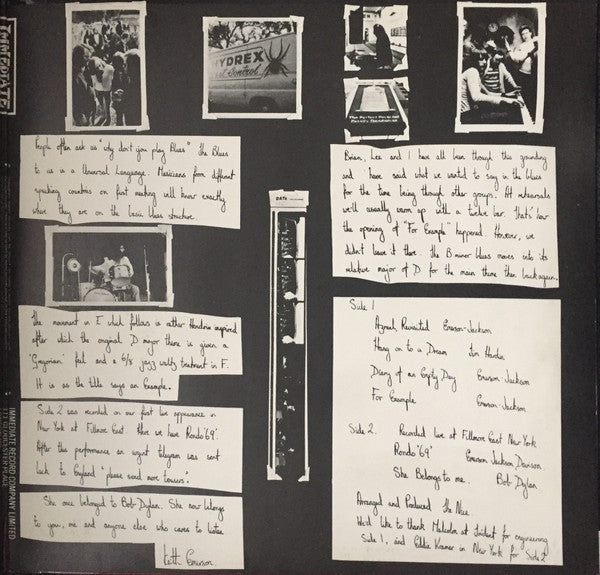 IMMEDIATE
HYDREX
Pest Control
People often ask us "why don't you play Blues" The Blues
to us is a Universal Language. Musicians from different
speaking countries on first meeting will know exactly
where they are on the basic blues structure.
Brian, Lee and I have all been through this grounding
and have said what we wanted to say in the blues
for the time being through other groups. At rehearsals
we'll usually warm up with a twelve bar. that's how
the opening of "For Example" happened. However, we
didn't leave it there. the B minor blues moves into its
relative major of D for the main theme then back again.
DATE
The movement in E which follows is rather Hendrix inspired
after which the original D major theme is given a
'Gregorian' feel and a 6/8 jazz waltz treatment in F.
It is as the title says an Example.
Side 2 was recorded on our first live appearance in
New York at Fillmore East. Here we have Rondo '69'.
After this performance an urgent telegram was sent
back to England "please send more towers".
She once belonged to Bob Dylan. She now belongs
to you, me and anyone else who cares to listen
Keith Emerson.
Side 1
Azrael Revisited Emerson-Jackson
Hang on to a Dream Tim Hardin
Diary of an Empty Day Emerson-Jackson
For Example Emerson-Jackson
Side 2. Recorded live at Fillmore East New York
Rondo '69' Emerson Jackson Davison
She Belongs to me. Bob Dylan
Arranged and Produced The Nice
We'd like to thank Malcolm at Trident for engineering
Side 1, and Eddie Kramer in New York for Side 2
IMMEDIATE RECORD COMPANY LIMITED